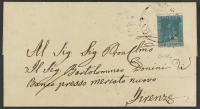 Al Sig Sig Proff͞mo
Il Sig Bartolommeo Donini
Banco presso mercato nuovo
Firenze